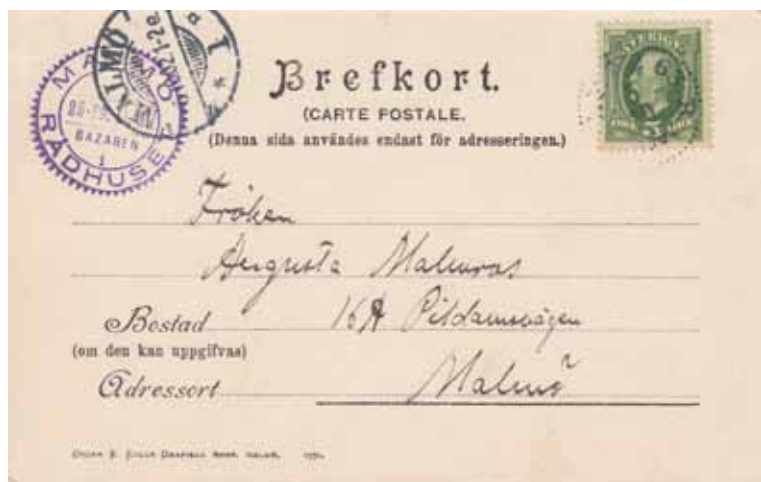 MALMÖ
RÅDHUSET
BAZAREN
i
MALMÖ
1
Brefkort.
(CARTE POSTALE.
(Denna sida användes endast för adresseringen.)
SVERIGE
Fröken
Augusta
Bostad 16A Pildamsvägen
(om den kan uppgifvas)
Adressort Malmö